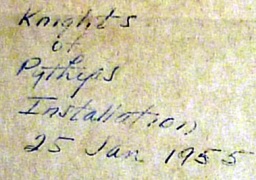 Knights
of
Pythias
Installation
25 Jan 1955